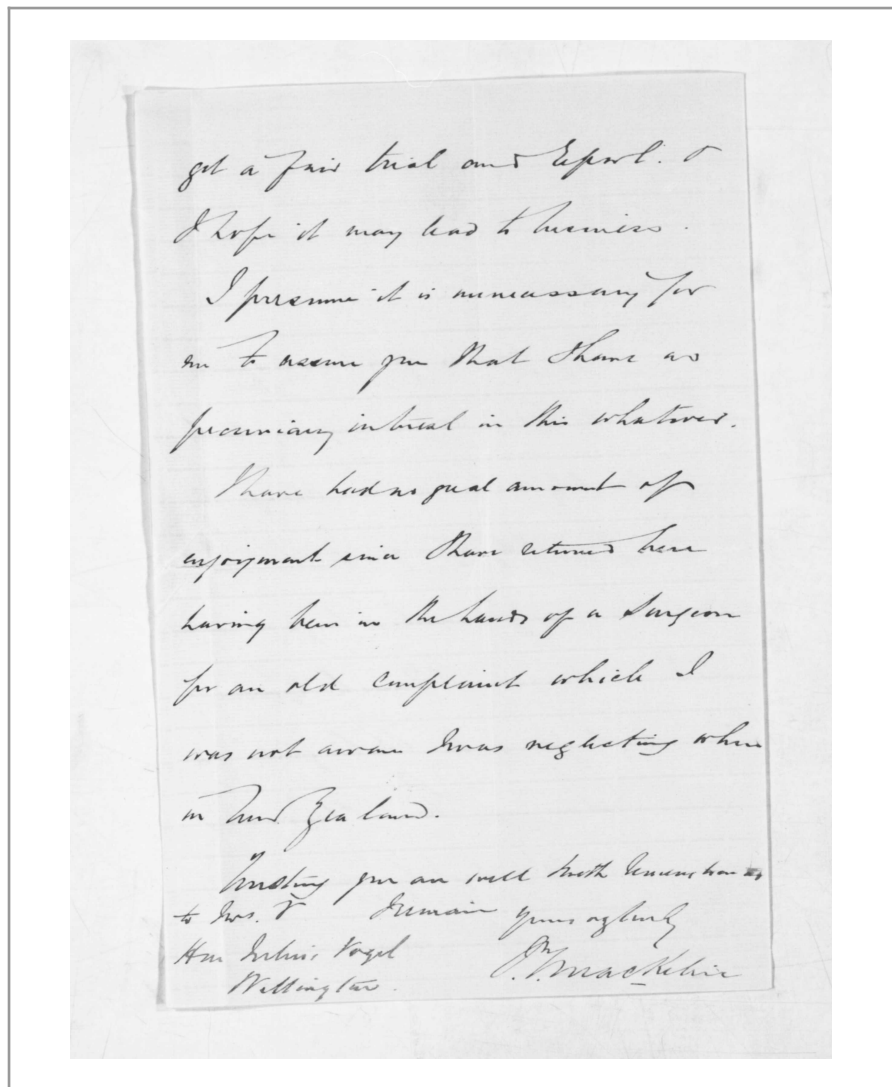 got a fair trial and Report. &
I hope it may lead to business.
I presume it is unnecessary for
me to assure you that I have no
pecuniary interest in this whatever.
I have had no great amount of
enjoyment since I have returned here
having been in the hands of a Surgeon
for an old complaint which I
was not aware I was neglecting when
in New Zealand.
Trusting you are well with remembrances
to Mrs. V I remain yours
Hon Julius Vogel
Wellington. Mackelvie